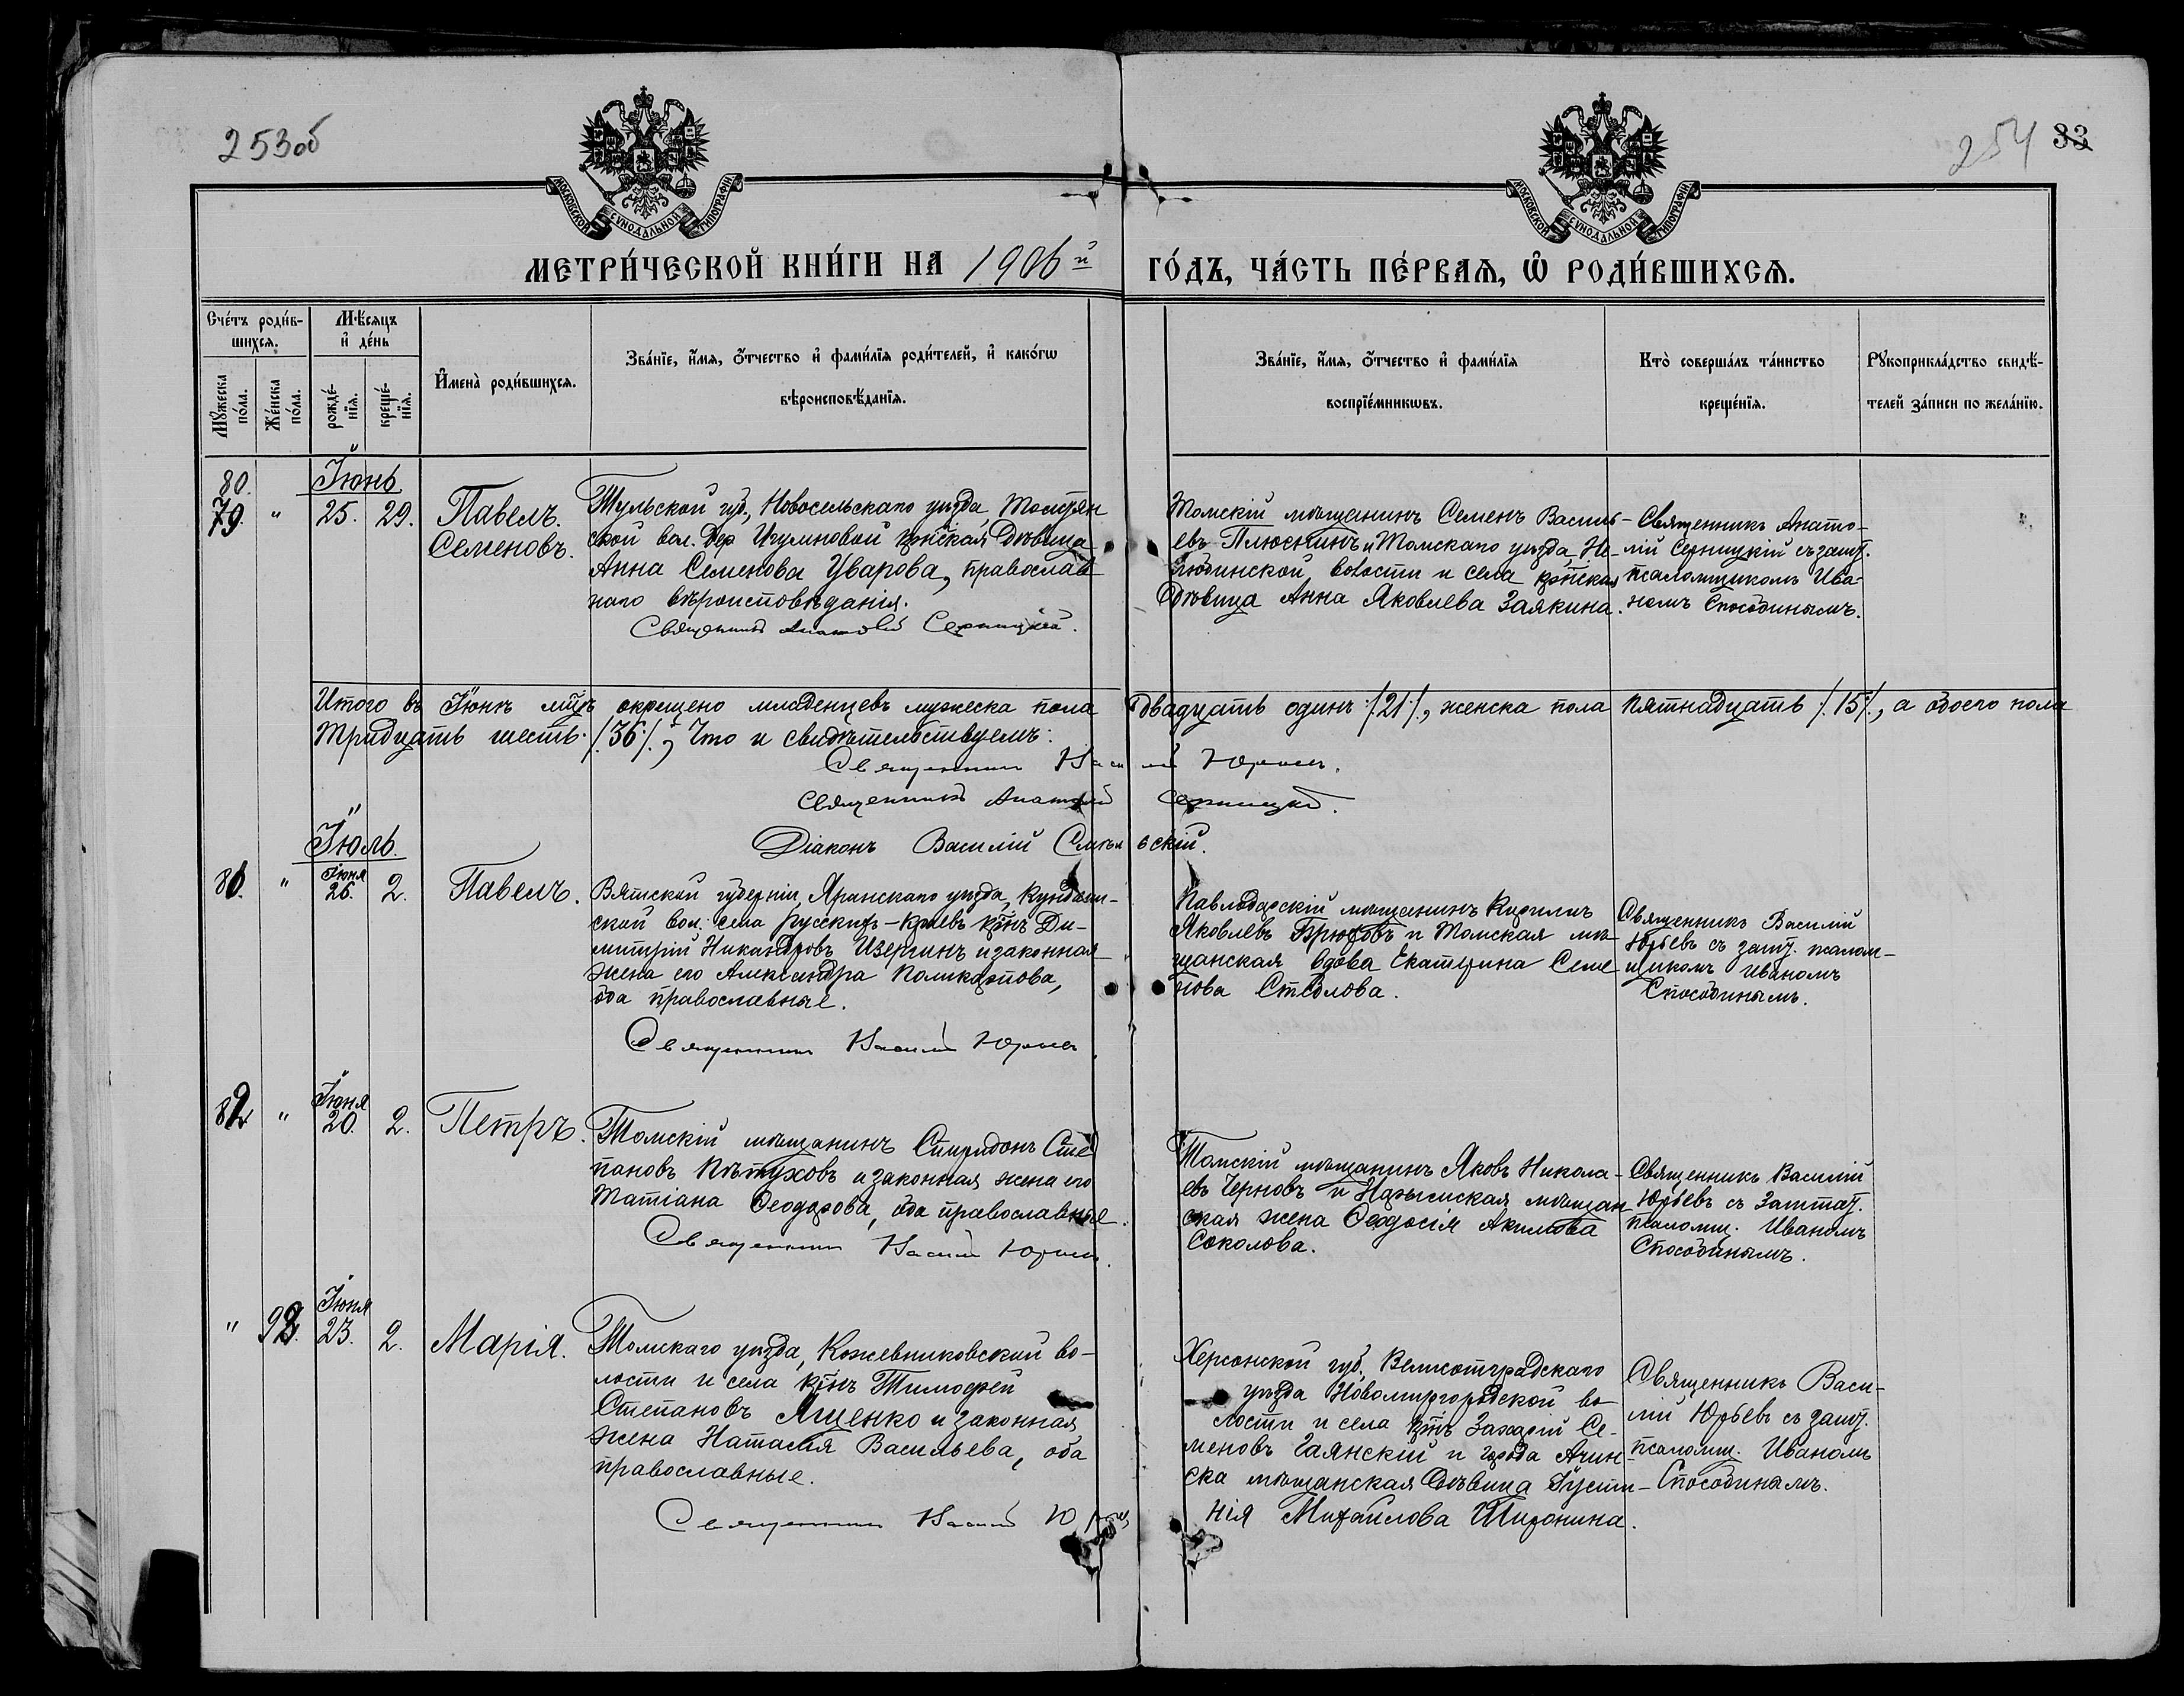 253об
254 33
МОСКОВСКОЙ СѴНОДАЛЬНОЙ ТИПОГРАФІИ
МОСКОВСКОЙ СѴНОДАЛЬНОЙ ТИПОГРАФІИ
МЕТРИ́ЧЕСКОЙ КНИ́ГИ НА 1906й ГО́ДЪ, ЧА́СТЬ ПЕ́РВАѦ, Ѡ РОДИ́ВШИХСѦ.
Сче́тъ роди́в-
шихсѧ.
Мꙋжеска по́ла.
Же́нска по́ла.
Мѣ́сѧцъ
и҆ де́нь
рожде́-
нїѧ.
креще́-
нїѧ.
И҆мена̀ роди́вшихсѧ.
Зва́нїе, и҆́мѧ, ѻ҆́тчество и҆ фами́лїѧ роди́телей, и҆ како́гѡ
вѣроисповѣ́данїѧ.
Зва́нїе, и҆́мѧ, ѻ҆́тчество и҆ фами́лїѧ
воспрїе́мникѡвъ.
Кто̀ соверша́лъ та́инство
креще́нїѧ.
Рꙋкоприкла́дство свидѣ́-
телей за́писи по жела́нїю.
Іюнь
80.
79. " 25. 29. Павелъ.
Семеновъ.
Тульской губ., Новосельскаго уѣзда,
ской вол. дер Игумновой кр̃нская дѣвица
Анна Семенова Уварова, православ
наго вѣроисповѣданія.
Священникъ Анатолій Серницкій.
Томскій мѣщанинъ Семенъ Василь-
евъ Плюснинъ и Томскаго уѣзда, Не-
любинской волости и села кр̃нская
дѣвица Анна Яковлева Заякина.
Священникъ Анато-
лій Серницкій съ зашт.
псаломщикомъ Ива-
номъ Способинымъ.
Итого въ Іюнѣ мц̃ѣ окрещено младенцевъ мужеска пола двадцать одинъ /.21./, женска пола пятнадцать /.15./, а обоего пола
тридцать шесть. /.36./, Что и свидѣтельствуемъ:
Священникъ Василій Юрьевъ.
Священникъ Анатолій Серницкій.
Діаконъ Василій
Іюль.
81. " Іюня
26. 2. Павелъ.
Вятской губерніи, Яранскаго уѣзда,
ской вол. села Русскихъ-Краевъ кр̃нъ Ди-
митрій Никандровъ Изергинъ и законная
жена его Александра Поликарпова,
оба православные.
Священникъ Василій Юрьевъ
Павлодарскій мѣщанинъ Кириллъ
Яковлевъ Брюховъ и Томская мѣ-
щанская вдова Екатерина Семе
нова Стеблова.
Священникъ Василій
Юрьевъ съ зашт. псалом-
щикомъ Иваномъ
Способинымъ.
82 " Іюня
20. 2. Петръ.
Томскій мѣщанинъ Спиридонъ Сте
пановъ Пѣтуховъ и законная жена его
Татіана Ѳеодорова, оба православные.
Священникъ Василій Юрьевъ.
Томскій мѣщанинъ Яковъ Никола-
евъ Черновъ и Нарымская мѣщан
ская жена Ѳеодосія Акимова
Соколова.
Священникъ Василій
Юрьевъ съ заштат.
псаломщ. Иваномъ
Способинымъ.
" Іюня
23. 2. Марія.
Томскаго уѣзда, Кожевниковской во-
лости и села кр̃нъ Тимофей
Степановъ Ященко и законная
жена Наталія Васильева, оба
православные.
Священникъ Василій Юрьевъ
Херсонской губ., Елисаветградскаго
уѣзда Новомиргородской во-
лости и села кр̃нъ Захарій Се-
меновъ Гаянскій и города Ачин-
ска мѣщанская дѣвица Іусти-
нія Михайлова Тихонина.
Священникъ Васи-
лій Юрьевъ съ зашт.
псаломщ. Иваномъ
Способинымъ.